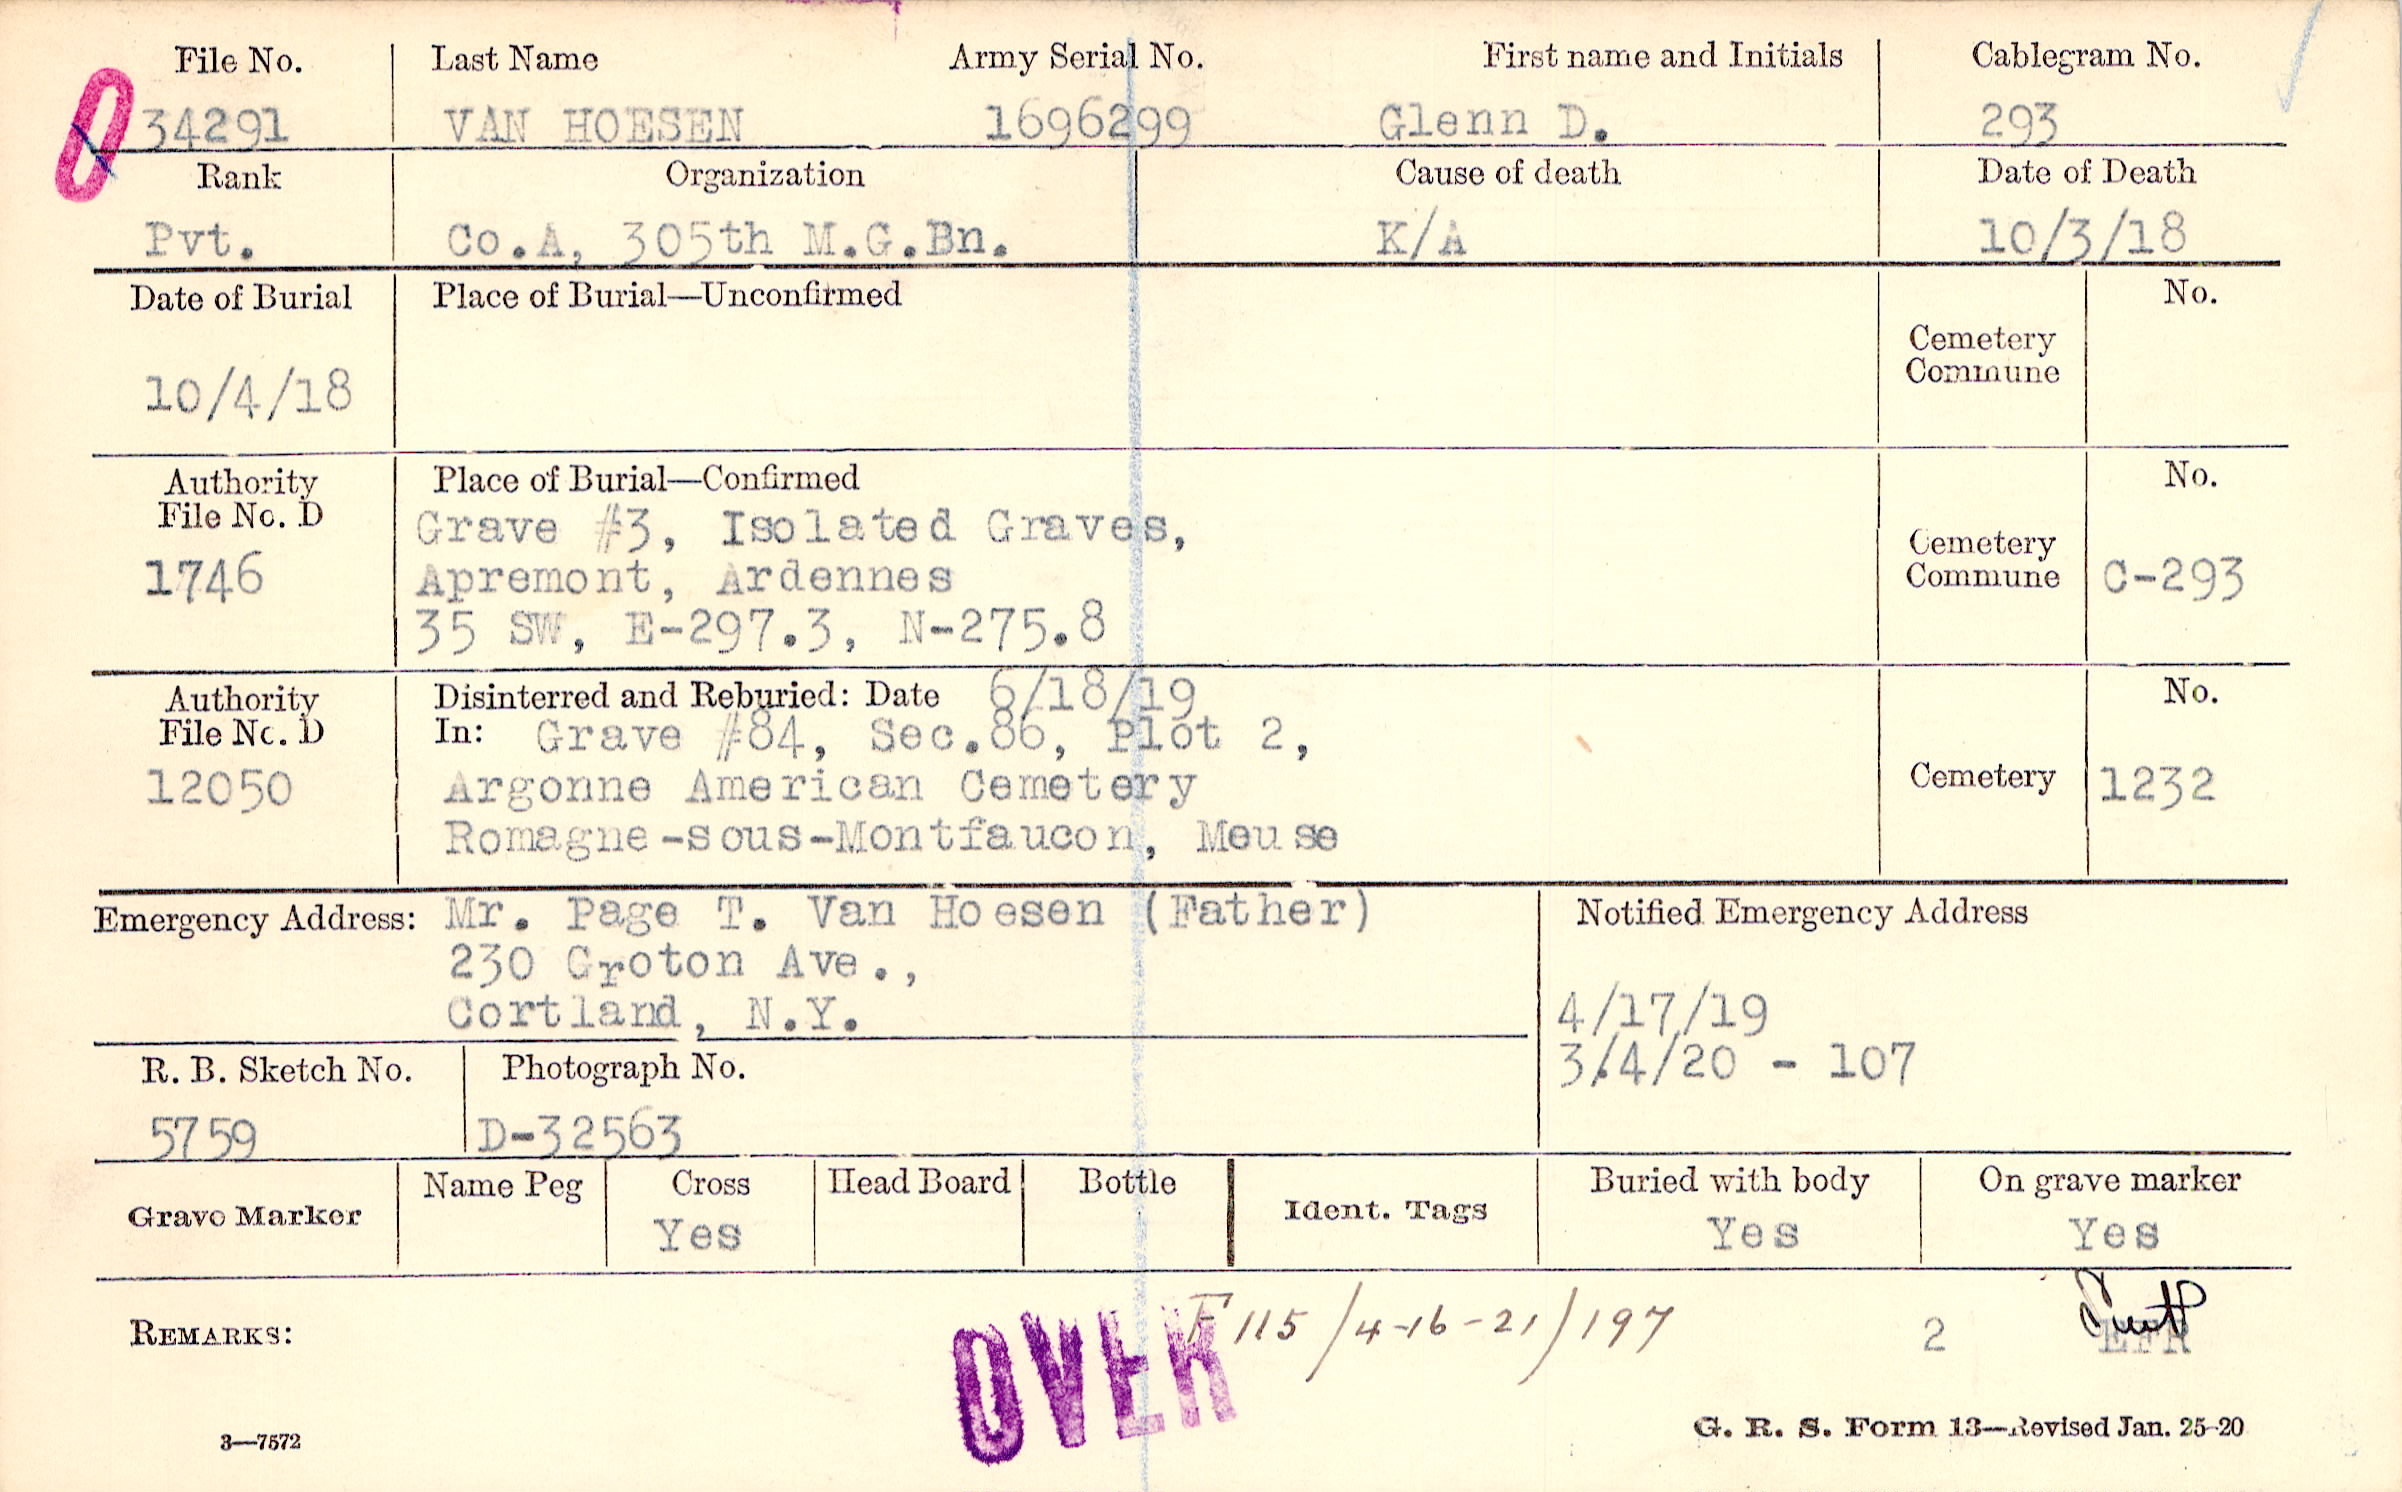 File No. Last Name Army Serial No. First name and Initials Cablegram No.
34291 VAN HOESEN 1696299 Glenn D. 293
Rank Organization Cause of death Date of Death
Pvt. Co.A, 305th M.G.Bn. K/A 10/3/18
Date of Burial Place of Burial—Unconfirmed No.
Cemetery
Commune
10/4/18
Authority Place of Burial—Confirmed No.
File No. D Grave #3, Isolated Graves,
Cemetery
1746 Apremont, Ardennes Commune C-293
35 SW, E-297.3, N-275.8
Authority Disinterred and Reburied: Date 6/18/19 No.
File No. D In: Grave #84, Sec.86, Plot 2,
12050 Argonne American Cemetery Cemetery 1232
Romagne-sous-Montfaucon, Meuse
Emergency Address: Mr. Page T. Van Hoesen (Father) Notified Emergency Address
230 Groton Ave.,
Cortland, N.Y. 4/17/19
3/4/20 - 107
R. B. Sketch No. Photograph No.
5759 D-32563
Grave Marker Name Peg Cross Head Board Bottle Ident. Tags Buried with body On grave marker
Yes Yes Yes
REMARKS: F 115/4-16-21/197 2 EFR
OVER
3—7572 G. R. S. Form 13—Revised Jan. 25-20